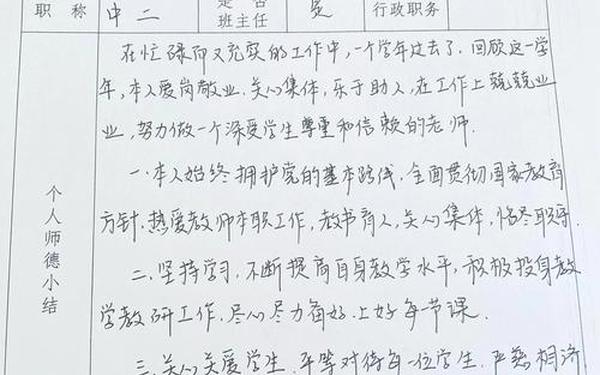 职称 中二 是否班主任 是 行政职务
个人师德小结
在忙碌而又充实的工作中，一个学年过去了．回顾这一学
年，本人爱岗敬业．关心集体，乐于助人，在工作上兢兢业
业，努力做一个深受学生尊重和信赖的老师．
一.本人始终拥护党的基本路线，全面贯彻国家教育
方针．热爱教师本职工作，教书育人，关心集体，恪尽职守．
二.坚持学习，不断提高自身教学水平，积极投身教
学教研工作，尽心尽力备好．上好每一节课．
三.关心关爱学生，平等对待每一位学生，严慈相济